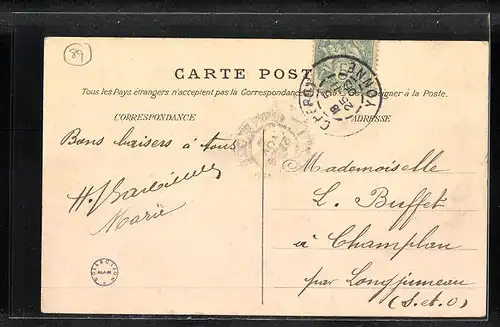 89
CARTE POST
Tous les Pays étrangers n'acceptent pas la Correspondance
à la Poste.
CORRESPONDANCE
ADRESSE
Bons baisers à tous
Marie
Mademoiselle
L. Buffet
à Champlan
par Longjumeau
(S. et O)
COLLECTION